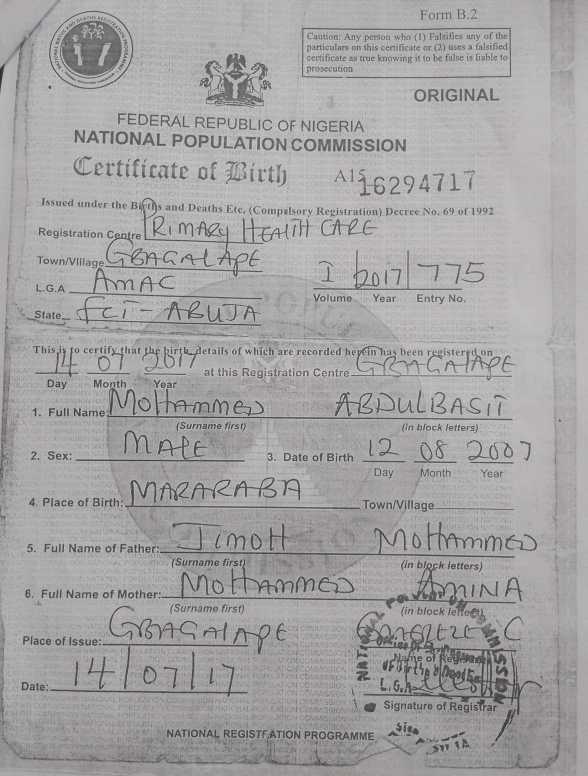 Form B.2
Caution: Any person who (1) Falsifies any of the
particulars on this certificate or (2) uses a falsified
certificate as true knowing it to be false is liable to
prosecution
ORIGINAL
FEDERAL REPUBLIC OF NIGERIA
NATIONAL POPULATION COMMISSION
Certificate of Birth
A15 16294717
Issued under the Births and Deaths Etc. (Compulsory Registration) Decree No. 69 of 1992
Registration Centre PRIMARY HEALTH CARE
Town/Village GBAGALAPE
L.G.A AMAC
I 2017 775
Volume Year Entry No.
State FCT - ABUJA
This is to certify that the birth, details of which are recorded herein has been registered on
14 07 2017 at this Registration Centre GBAGALAPE
Day Month Year
1. Full Name: MOHAMMED ABDULBASIT
(Surname first) (in block letters)
2. Sex: MALE 3. Date of Birth 12 08 2007
Day Month Year
4. Place of Birth: MARARABA Town/Village
5. Full Name of Father: JIMOH MOHAMMED
(Surname first) (in block letters)
6. Full Name of Mother: MOHAMMED AMINA
(Surname first) (in block letters)
Place of Issue: GBAGALAPE
Name of Registrar
Date: 14/07/17
Signature of Registrar
NATIONAL REGISTRATION PROGRAMME